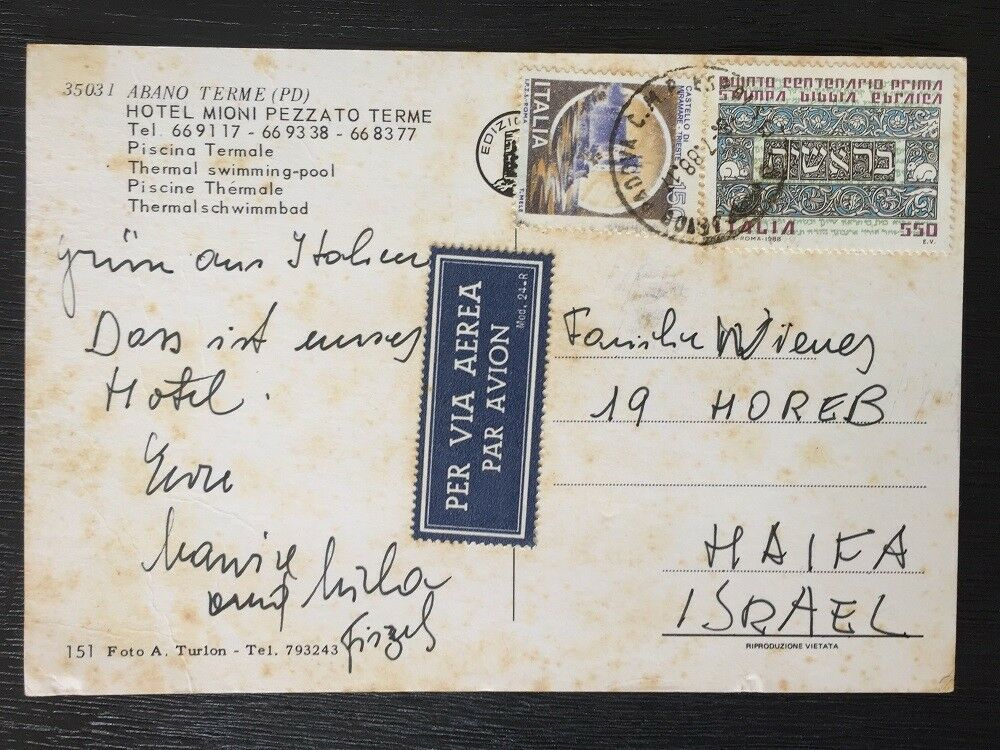 35031 ABANO TERME (PD)
HOTEL MIONI PEZZATO TERME
Tel. 669117 - 669338 - 668377
Piscina Termale
Thermal swimming-pool
Piscine Thérmale
Thermalschwimmbad
EDIZIO
ITALIA
I.P.Z.S.-ROMA
CASTELLO DI
MIRAMARE - TRIESTE
T. MELE
QUINTO CENTENARIO PRIMA
STAMPA BIBBIA EBRAICA
בראשית
ITALIA 550
ROMA-1988 E.V.
PER VIA AEREA
PAR AVION
Mod. 24-R
aus Italien
Dass ist unser
Hotel.
und Mila
Familie Wiener
19 HOREB
HAIFA
ISRAEL
RIPRODUZIONE VIETATA
151 Foto A. Turlon - Tel. 793243